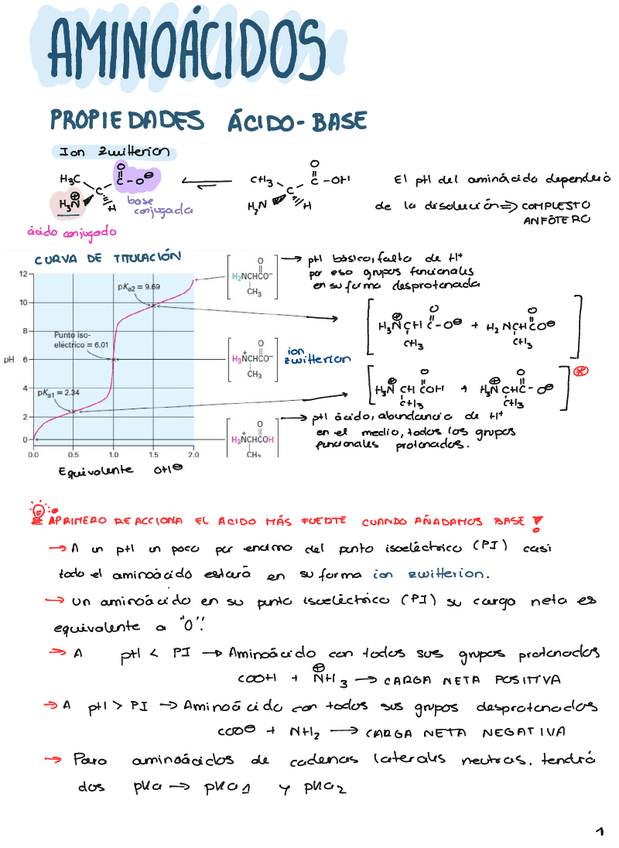 AMINOÁCIDOS
PROPIEDADES ÁCIDO-BASE
Ion zwitterion
H₃C
O
C-O⊖
C
H₃N⊕
H
base
conjugada
ácido conjugado
CH₃
O
C-OH
C
H₂N
H
El pH del aminoácido dependerá
de la disolución ⇒ COMPLESTO
ANFÓTERO
CURVA DE TITULACIÓN
12
10
8
pH 6
4
2
0
0.0 0.5 1.0 1.5 2.0
pKa2 = 9.69
Punto iso-
eléctrico = 6.01
pKa1 = 2.34
Equivalente OH⊖
O
H₂NCHCO⁻
CH₃
→ pH básico, falta de H⁺
por eso grupos funcionales
en su forma desprotonada
⊕ O O
H₃NCH C-O⊖ + H₂NCHCO⊖
CH₃ CH₃
+ O
H₃NCHCO⁻
CH₃
ion
zwitterion
⊕ O ⊕ O
H₃N CH COH + H₃N CHC-O⊖
CH₃ CH₃
+ O
H₃NCHCOH
CH₃
→ pH ácido, abundancia de H⁺
en el medio, todos los grupos
funcionales protonados.
PRIMERO REACCIONA EL ÁCIDO MÁS FUERTE CUANDO AÑADAMOS BASE!
→ A un pH un poco por encima del punto isoeléctrico (PI) casi
todo el aminoácido estará en su forma ion zwitterion.
→ Un aminoácido en su punto isoeléctrico (PI) su carga neta es
equivalente a "0".
→ A pH < PI → Aminoácido con todos sus grupos protonados
COOH + ⊕NH₃ → CARGA NETA POSITIVA
→ A pH > PI → Aminoácido con todos sus grupos desprotonados
COO⊖ + NH₂ → CARGA NETA NEGATIVA
→ Para aminoácidos de cadenas laterales neutras, tendrá
dos pKa → pKa1 y pKa2
1